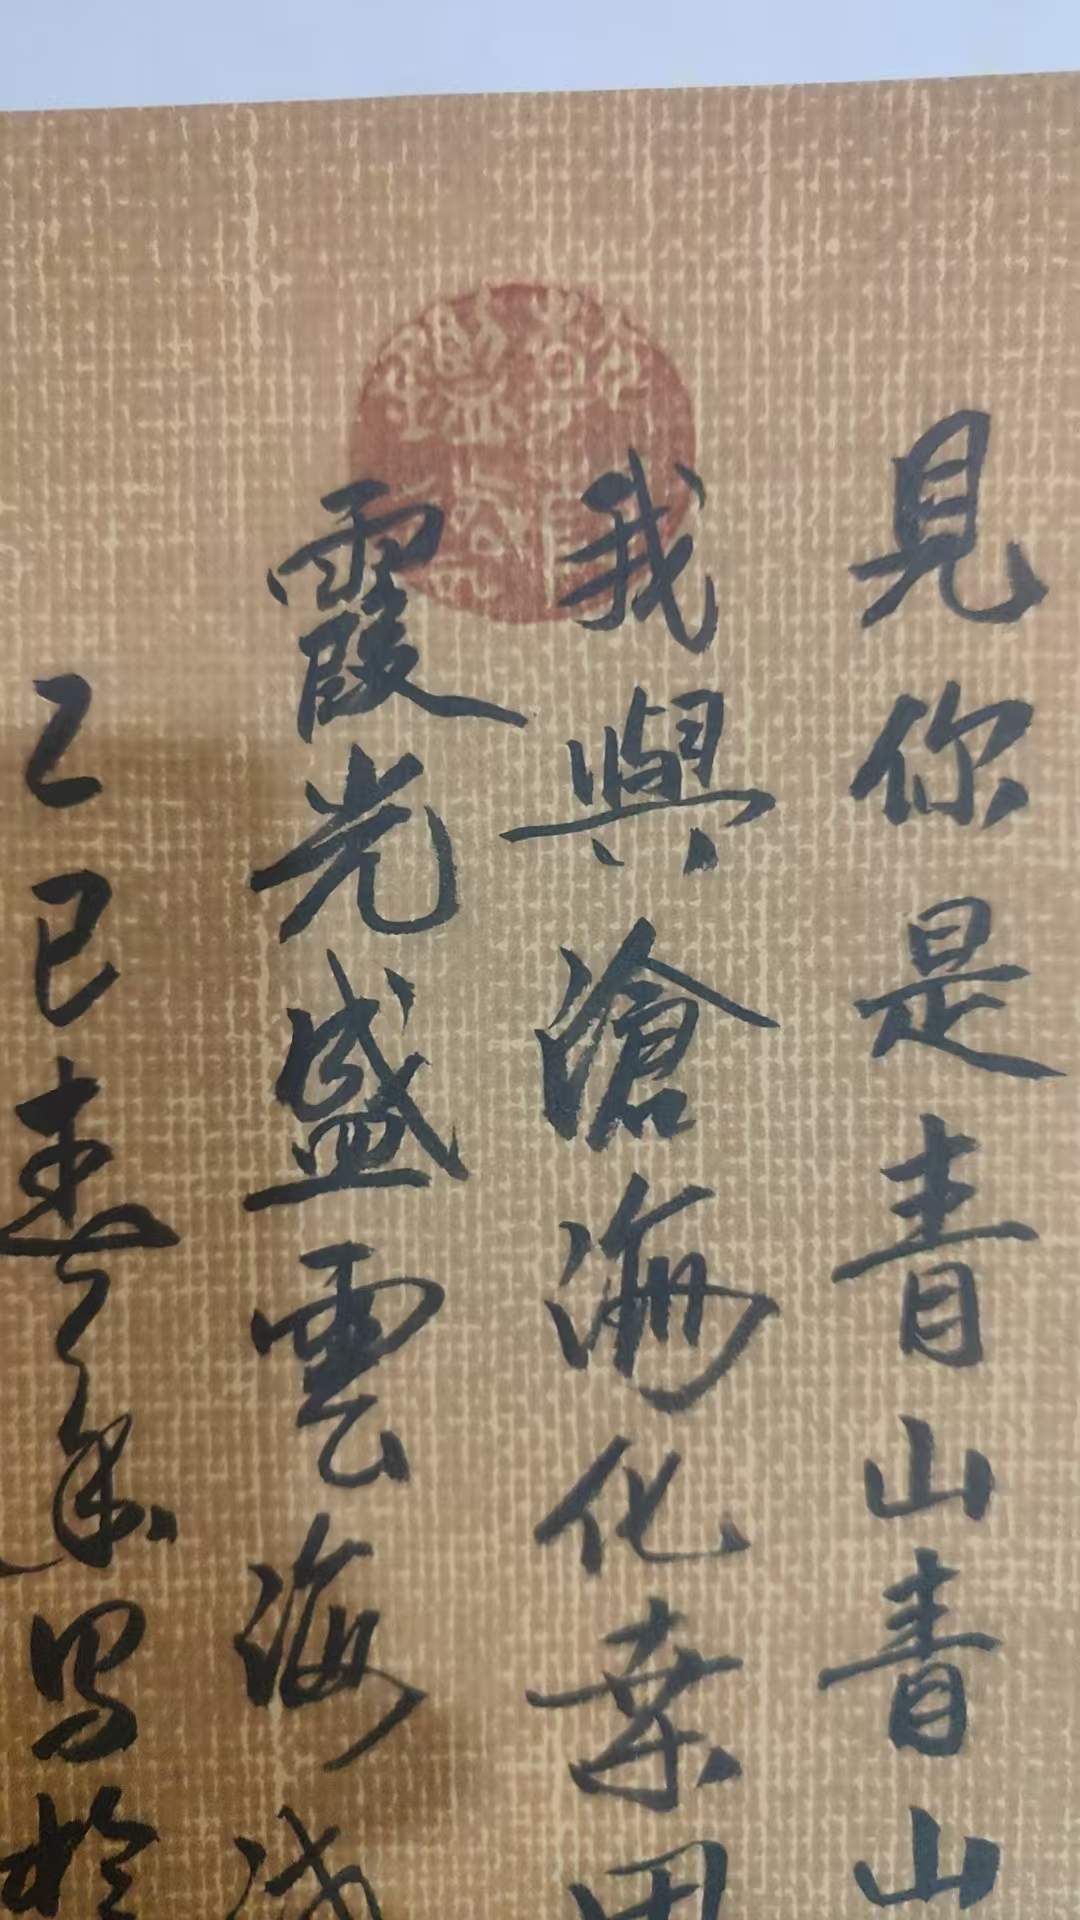 見你是青山青山
我與滄海化桑田
霞光盛雲海
乙巳春年写於